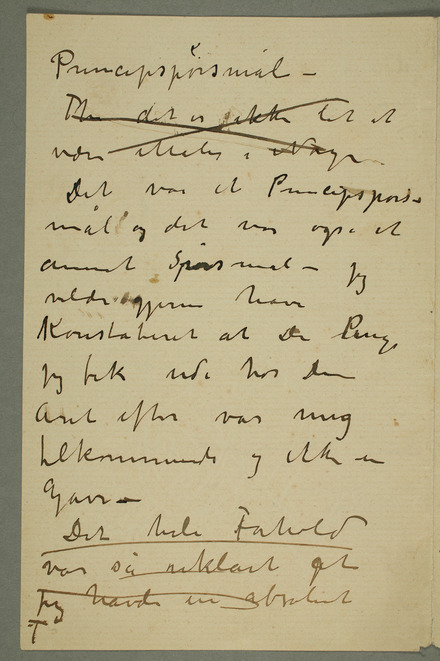 Principspörsmål –
Thi det er ikke let at
være Maler i Norge
Det var et Principspörs-
mål og det var også et
annet Spörsmål – Jeg
vilde gjerne have
Konstateret at De Penge
jeg fik ude hos Dem
Året efter var mig
tilkommende og ikke en
Gave –
Det hele Forhold
var så uklart at
jeg havde en absolut
T